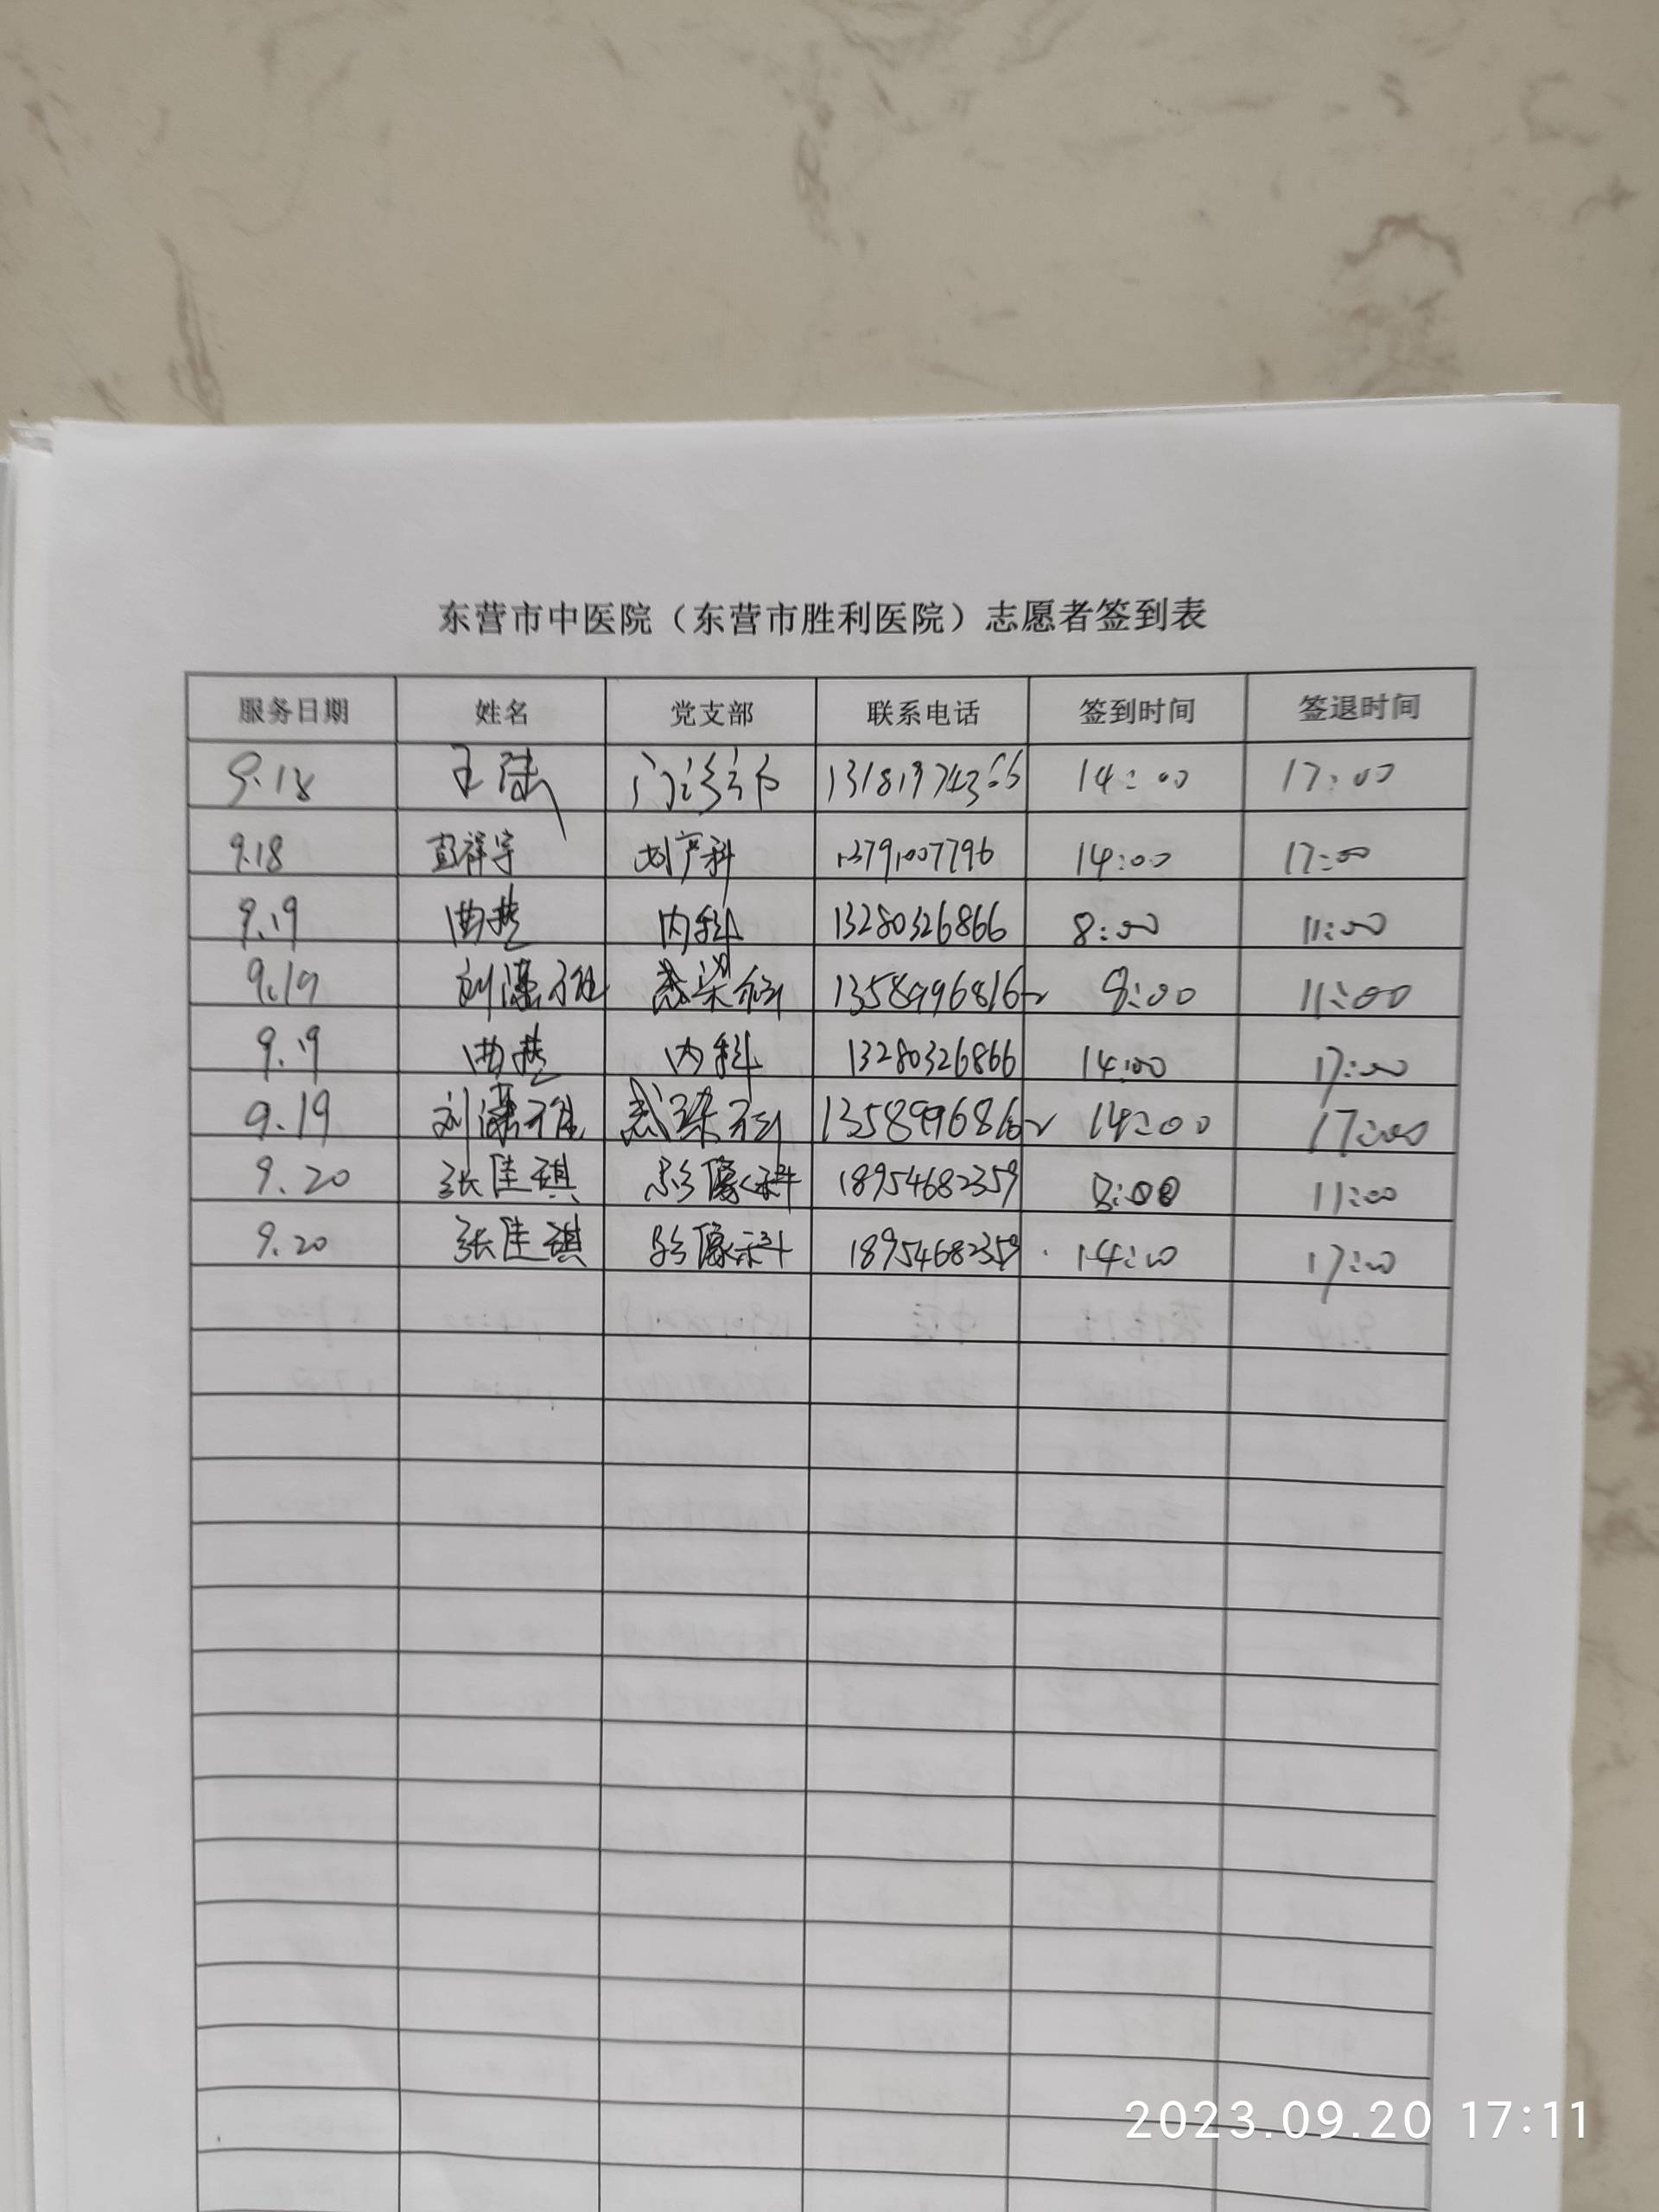 东营市中医院（东营市胜利医院）志愿者签到表
服务日期 姓名 党支部 联系电话 签到时间 签退时间
9.18 王陆 门诊 14:00 17:00
9.18 彭祥宇 妇产科 13791007796 14:00 17:00
9.19 曲楚 内科 13280326866 8:00 11:00
9.19 刘 感染科 8:00 11:00
9.19 曲楚 内科 13280326866 14:00 17:00
9.19 刘 感染科 14:00 17:00
9.20 张佳琪 影像科 18954682359 8:00 11:00
9.20 张佳琪 影像科 18954682359 14:00 17:00
2023.09.20 17:11